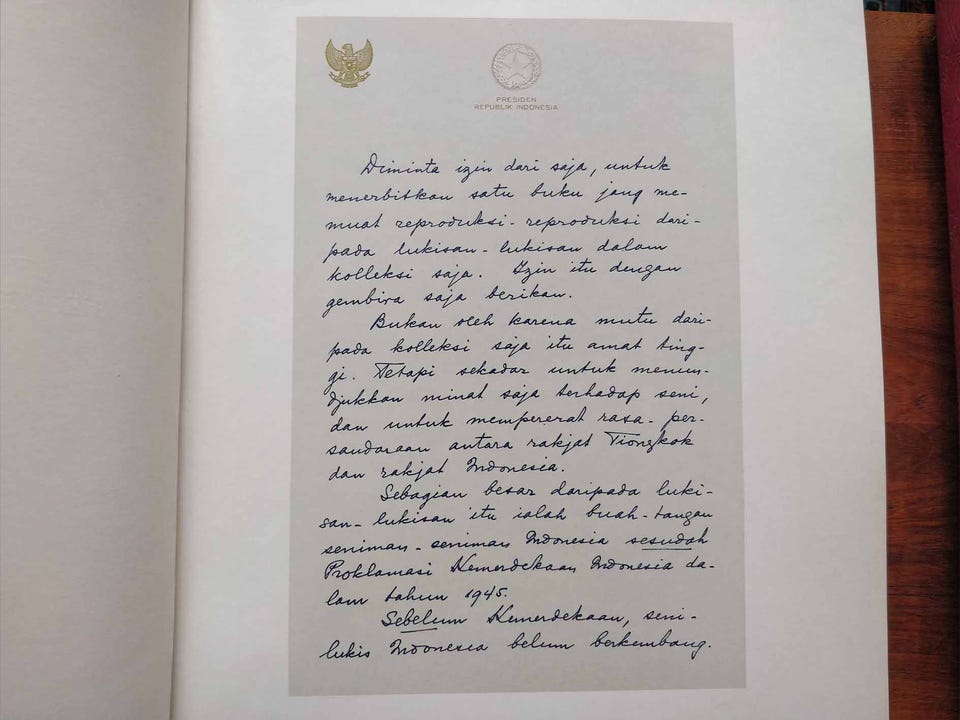 PRESIDEN
REPUBLIK INDONESIA
Diminta izin dari saja, untuk
menerbitkan satu buku jang me-
muat reproduksi-reproduksi dari-
pada lukisan-lukisan dalam
kolleksi saja. Izin itu dengan
gembira saja berikan.
Bukan oleh karena mutu dari-
pada kolleksi saja itu amat ting-
gi. Tetapi sekadar untuk menun-
djukkan minat saja terhadap seni,
dan untuk mempererat rasa-per-
saudaraan antara rakjat Tiongkok
dan rakjat Indonesia.
Sebagian besar daripada luki-
san-lukisan itu ialah buah-tangan
seniman-seniman Indonesia sesudah
Proklamasi Kemerdekaan Indonesia da-
lam tahun 1945.
Sebelum Kemerdekaan, seni-
lukis Indonesia belum berkembang.